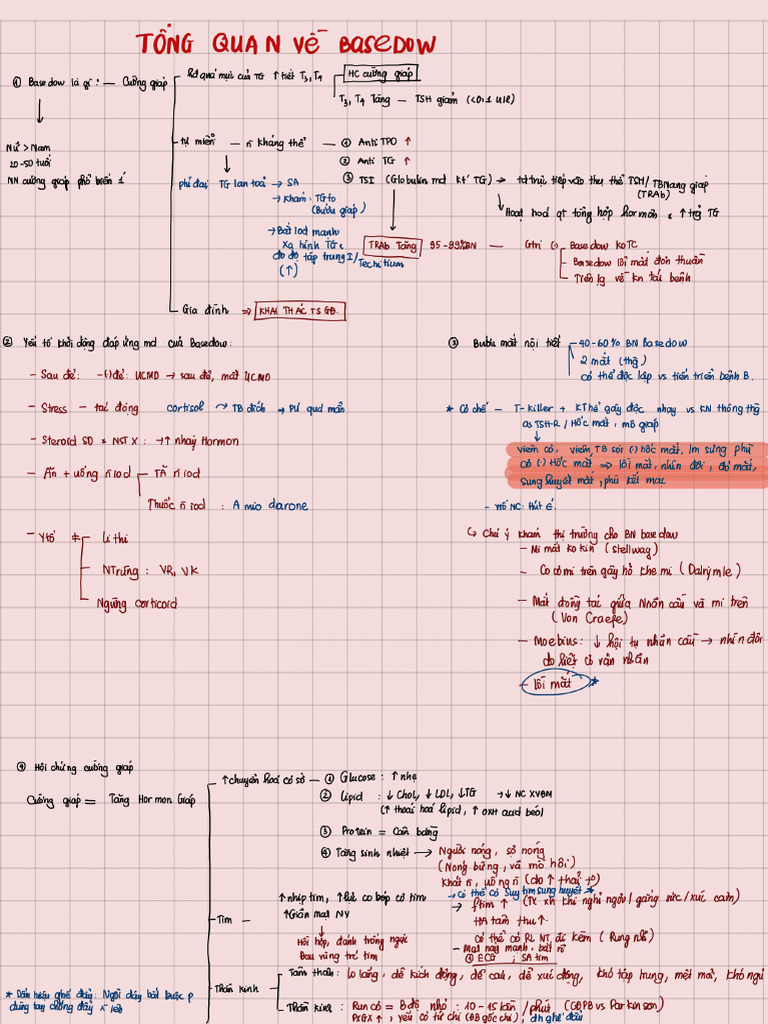 TỔNG QUAN VỀ BASEDOW
① Basedow là gì: — Cường giáp
Nữ > Nam
20-50 tuổi
NN cường giáp phổ biến 1
HĐ quá mức của TG ↑ tiết T3, T4
HC cường giáp
T3, T4 Tăng — TSH giảm (<0,1 UI/l)
- tự miễn — n kháng thể
① Anti TPO ↑
② Anti TG ↑
③ TSI (Globulin md kt' TG) → tđ trực tiếp vào thụ thể TSH / TB nang giáp
(TRAb)
→ Hoạt hoá qt tổng hợp hormon & ↑ trg TG
phì đại TG lan toả → SA
→ Khám: TG to
(Bướu giáp)
→ Bắt Iod mạnh
Xạ hình TG:
đo độ tập trung I/Techitium
(↑)
TRAb Tăng 95-99% BN — Gtrị
Basedow ko TC
Basedow lồi mắt đơn thuần
Tiên lg về kn tái bệnh
Gia đình ⇒ KHAI THÁC TS GĐ.
② Yếu tố khởi động đáp ứng md của Basedow:
- Sau đẻ: - (-) đẻ: ƯCMD → sau đẻ, mất ƯCMD
- Stress - tác động cortisol → TB đích → PƯ quá mẫn
- Steroid SD & NST X: → ↑ nhạy Hormon
- Ăn + uống n iod
TĂ n iod
Thuốc n iod: Amiodarone
- Ytố ≠
Lithi
NTrùng: VR, VK
Ngừng corticoid
③ Bướu mắt nội tiết
- 40-60% BN Basedow
2 mắt (thg)
có thể độc lập vs tiến triển bệnh B.
* Cơ chế — T-killer + KThể gây độc nhạy vs KN thông thg
as TSH-R / Hốc mắt, mô giáp
viêm cơ, viêm TB sợi (-) hốc mắt, lm sưng phù
cơ (-) Hốc mắt ⇒ lồi mắt, nhìn đôi, đỏ mắt,
sung huyết mắt, phù kết mạc
- YTố NC: Hút
↪ Chú ý khám thị trường cho BN basedow
- Mi mắt ko kín (stellwag)
- Co cơ mi trên gây hở khe mi (Dalrymle)
- Mất đồng tác giữa Nhãn cầu và mi trên
(Von Craefe)
- Moebius: ↓ hội tụ nhãn cầu → nhìn đôi
do liệt cơ vận nhãn
- lồi mắt *
④ Hội chứng cường giáp
Cường giáp = Tăng Hormon Giáp
↑ chuyển hoá cơ sở —
① Glucose: ↑ nhẹ
② Lipid: ↓ Chol, ↓ LDL, ↓TG → ↓ NC XVĐM
(↑ thoái hoá lipid, ↑ OXH acid béo)
③ Protein = Cân bằng
④ Tăng sinh nhiệt → Người nóng, sợ nóng
(Nóng bừng, vã mồ hôi)
Khát n, uống n (do ↑ thải to)
- Tim —
↑ nhịp tim, ↑ lực co bóp cơ tim
↑ Giãn mạch NV
Hồi hộp, đánh trống ngực
Đau vùng trc tim
→ Có thể có Suy tim sung huyết *
→ f tim ↑ (Tx xh khi nghỉ ngơi / gắng sức / xúc cảm)
HA tâm thu ↑.
có thể có RL NT đi kèm (Rung nhĩ)
- Mạch nảy mạnh, bắt rõ
① ECG, SA tim
- Thần kinh
Tâm thần: lo lắng, dễ kích động, dễ cáu, dễ xúc động, khó tập trung, mệt mỏi, khó ngủ
Thần kinh: Run cơ = Bđộ nhỏ: 10-15 lần / phút (GĐPB vs Parkinson)
PXGX ↑, yếu cơ tứ chi (ĐB gốc chi), dh ghế đẩu
* Dấu hiệu ghế đẩu: Ngồi dậy bắt buộc p
dùng tay chống đẩy